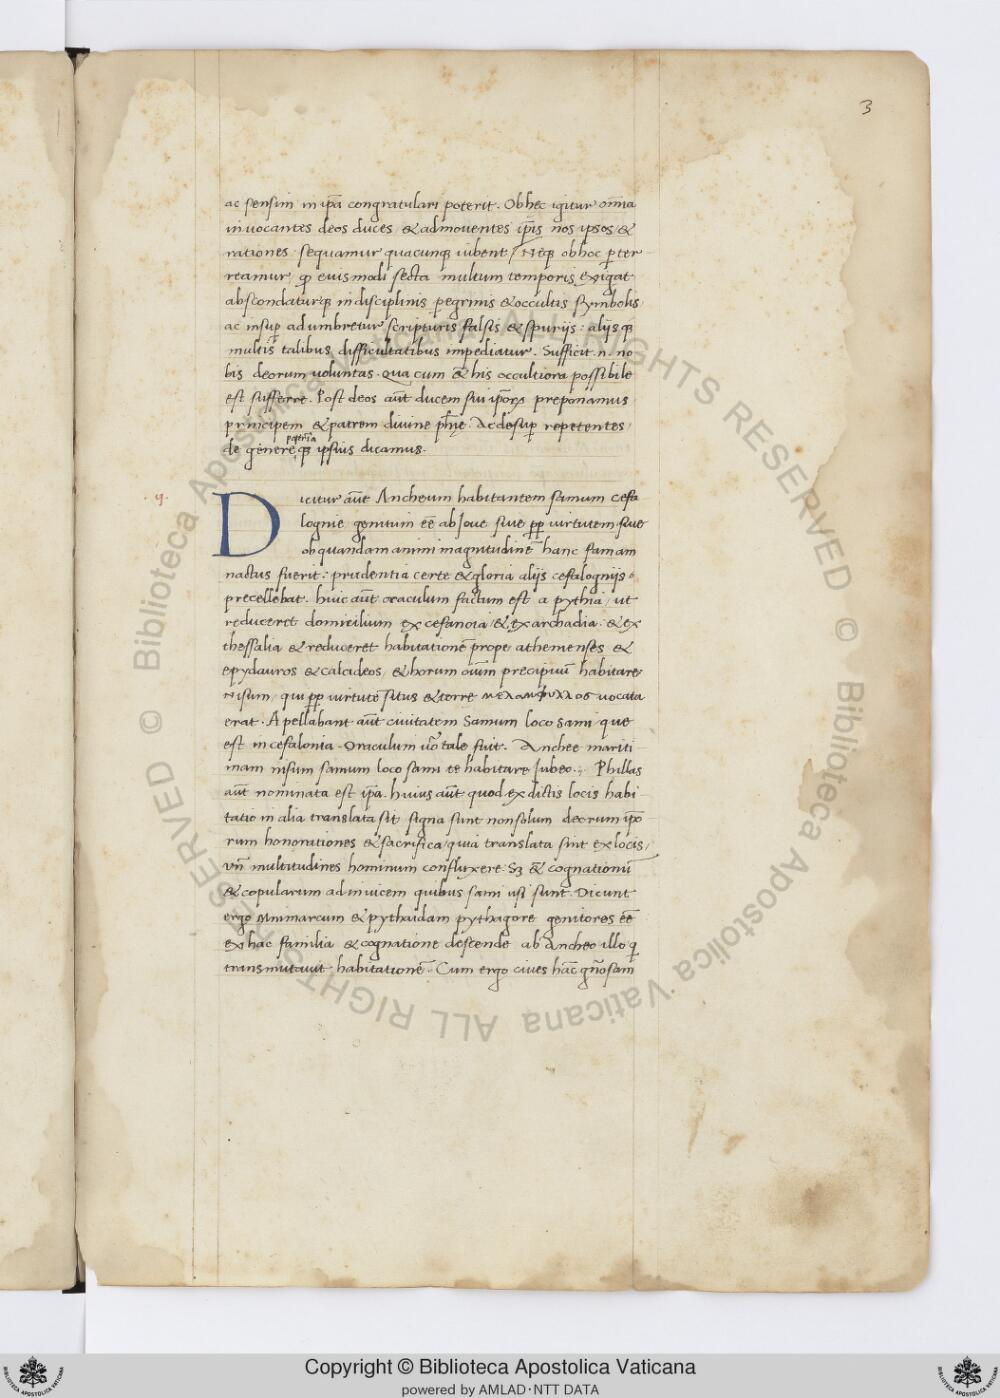 3
ac sensim in ip̄a congratulari poterit. Ob hec igitur om̄ia
invocantes deos duces / & admoventes ip̄is nos ipsos / &
rationes sequamur quacunq; iubent / Neq; ob hoc p̄ter
reamur q̄ eiusmodi secta multum temporis exigat
abscondaturq; in disciplinis p̄egrinis & occultis symbolis
ac insup̄ adumbretur scripturis falsis & spurijs : alijsq;
multis talibus difficultatibus impediatur. Sufficit .n. no
bis deorum voluntas. Qua cum & his occultiora possibile
est sufferre. Post deos aūt ducem sui ip̄orꝝ preponamus
principem & patrem divine ph̄ie. Ac desup̄ repetentes
de genere patriaq; ipsius dicamus.
.ij.
Dicitur aūt Ancheum habitantem samum cefa
lognie genitum eē ab Iove sive p̄p̄ virtutem / sive
ob quandam animi magnitudinē hanc famam
nactus fuerit : prudentia certe & gloria alijs cefalognijs
precellebat. huic aūt oraculum factum est a pythia / ut
reduceret domicilium ex cefanoia / & ex archadia & ex
thessalia & reduceret habitationē prope athemenses &
epydauros & calcideos / & horum oīum precipiuū habitare
Nisum / qui p̄p̄ virtutē situs & terre μελαμφυλλος vocata
erat. Apellabant aūt civitatem Samum loco sami / que
est in cefalonia. Oraculum v̄o tale fuit. Anchee mariti
mam nisum samum loco sami te habitare Iubeo. Phillas
aūt nominata est ip̄a. huius aūt quod ex dictis locis habi
tatio in alia translata sit signa sunt non solum deorum ip̄o
rum honorationes & sacrifica / quia translata sint ex locis /
vn̄ multitudines hominum confluxere Sꝫ & cognationū
& copularum ad invicem quibus sami usi sunt. Dicunt
ergo Mnimarcum & pythaidam pythagore genitores eē
ex hac familia & cognatione descende ab Ancheo illo q̄
transmutavit habitationē. Cum ergo cives hāc gn̄osam
© Biblioteca Apostolica Vaticana ALL RIGHTS RESERVED © Biblioteca Apostolica Vaticana ALL RIGHTS RESERVED
Copyright © Biblioteca Apostolica Vaticana
powered by AMLAD・NTT DATA
BIBLIOTECA APOSTOLICA VATICANA
BIBLIOTECA APOSTOLICA VATICANA